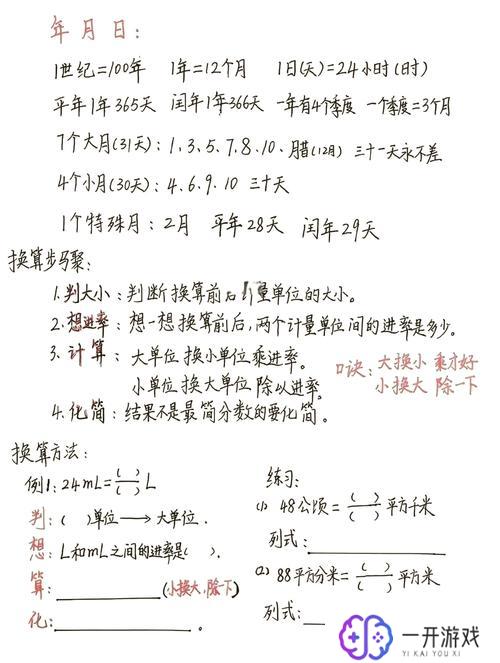 年 月 日：
1世纪=100年 1年=12个月 1日(天)=24小时(时)
平年1年365天 闰年1年366天 一年有4个季度 一个季度=3个月
7个大月(31天)：1、3、5、7、8、10、腊(12月) 三十一天永不差
4个小月(30天)：4、6、9、10 三十天
1个特殊月：2月 平年28天 闰年29天
换算步骤：
1.判大小：判断换算前后计量单位的大小。
2.想进率：想一想换算前后，两个计量单位间的进率是多少。
3.计算：大单位换小单位乘进率。
小单位换大单位除以进率。
口诀：大换小 乘才好
小换大 除一下
4.化简：结果不是最简分数的要化简。
换算方法：
例1：24mL=( )/( )L
判：( )单位→大单位.
想：L和mL之间的进率是( ).
算：__________(小换大，除一下)
化：__________。
练习：
(1) 48公顷=( )/( )平方千米
列式：__________
(2) 88平方分米=( )/( )平方米
列式：__________
一开游戏
YI KAI YOU XI